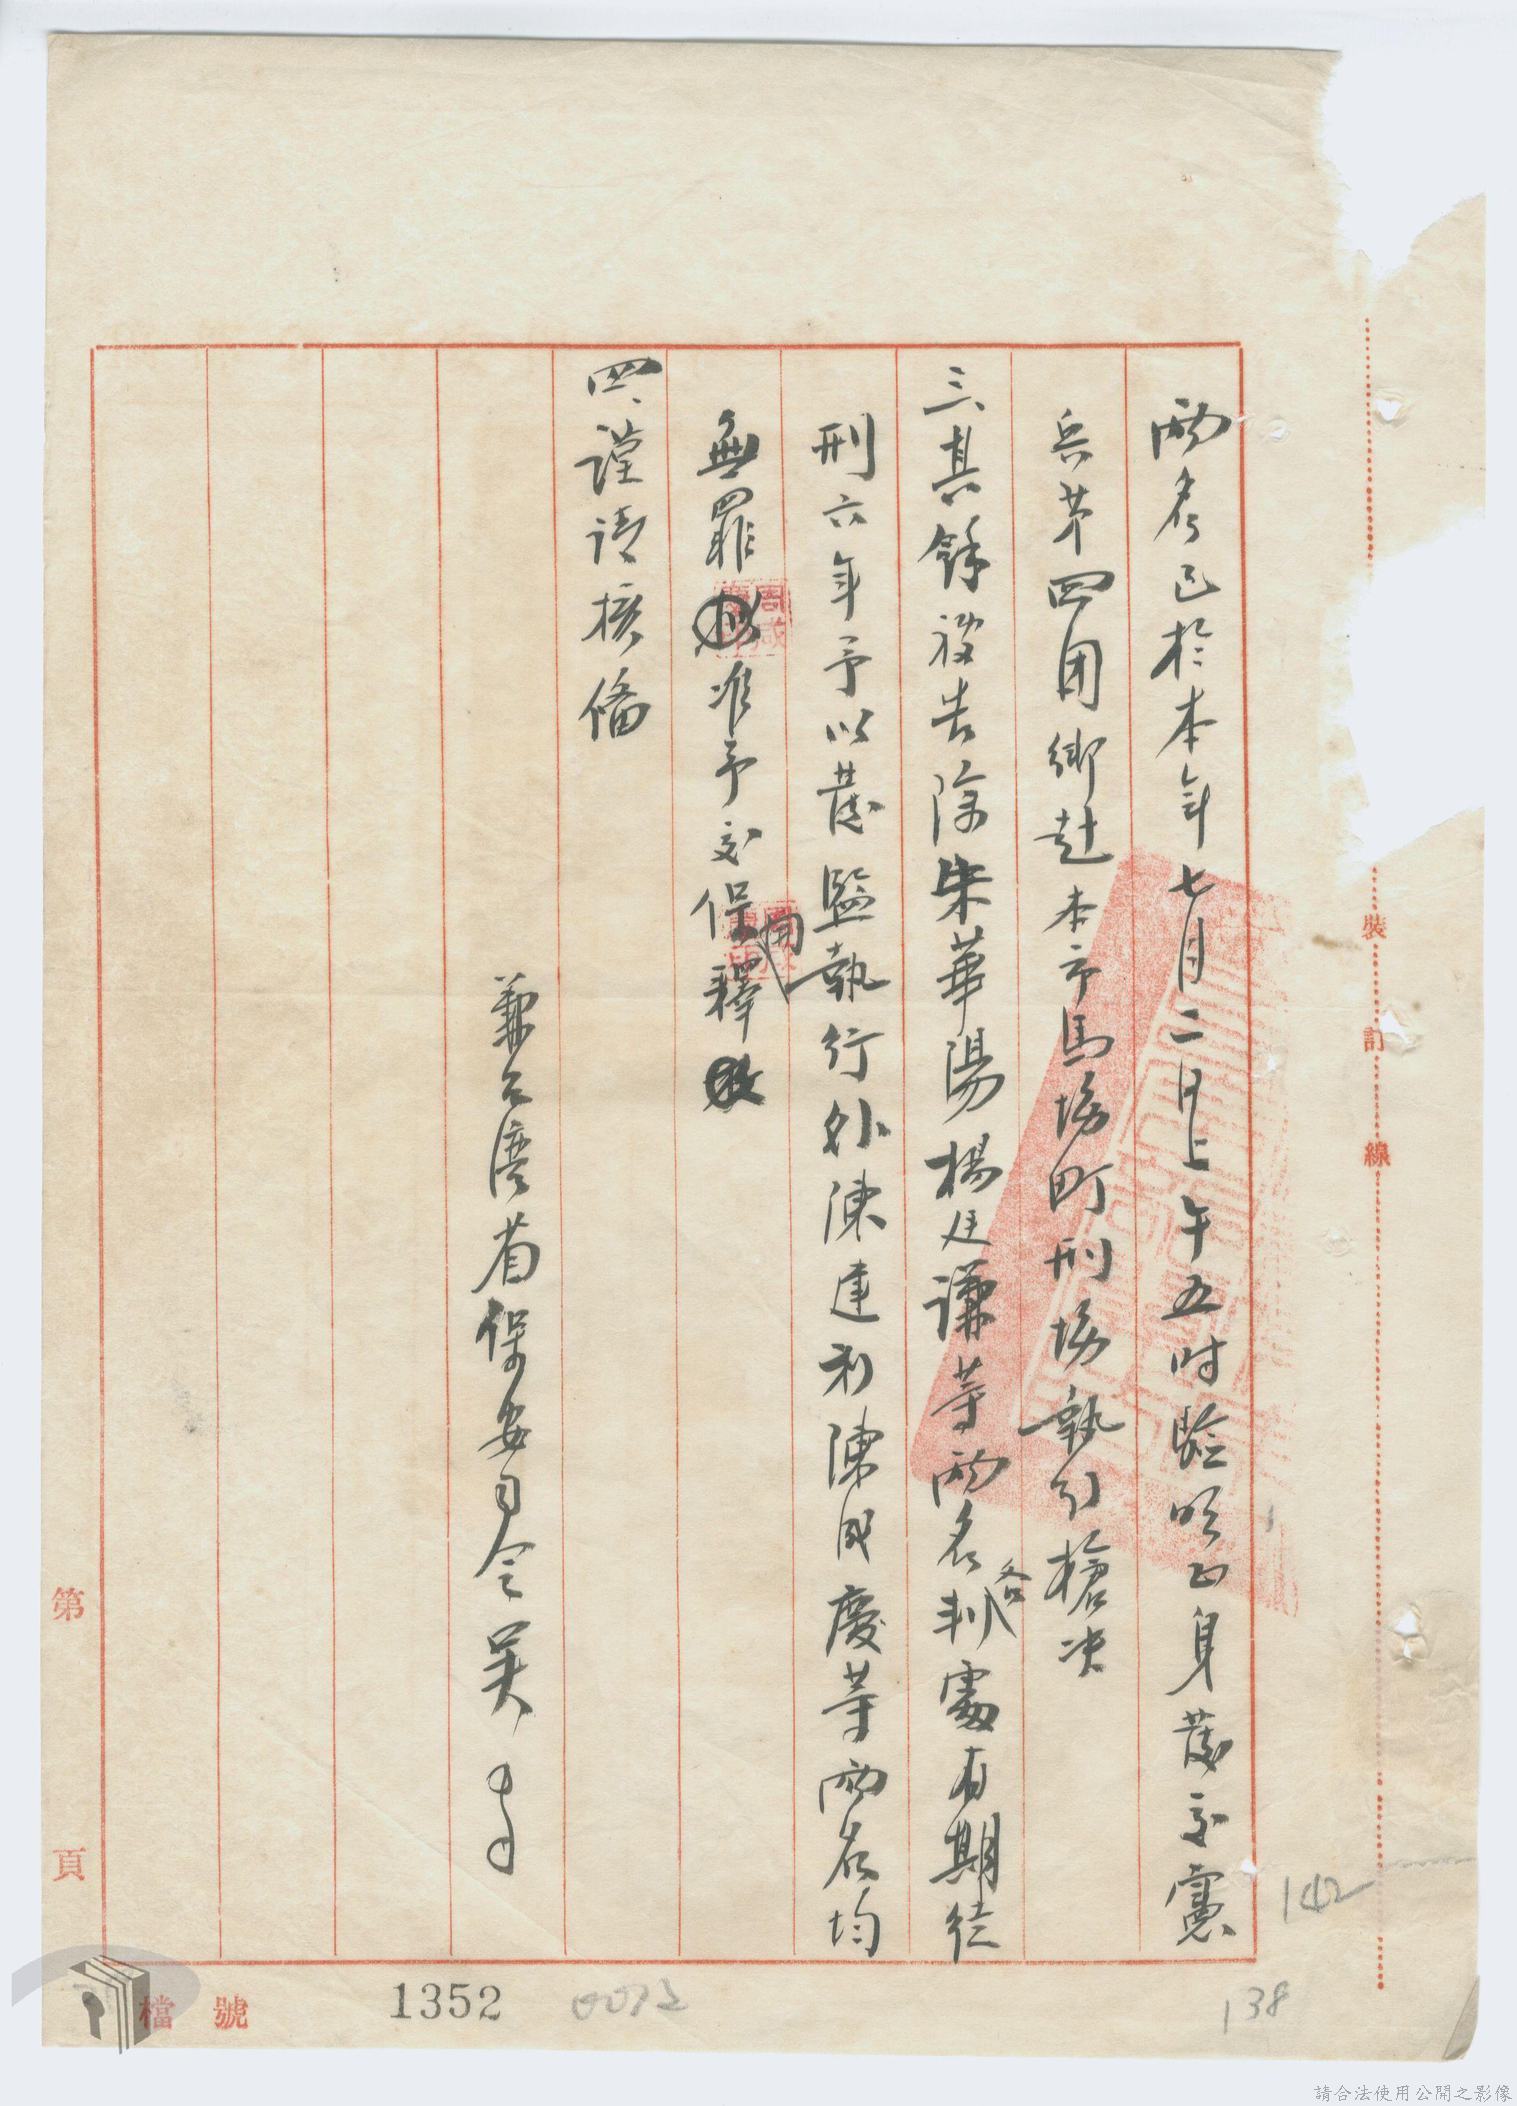 兩名已於本年七月二日上午五时驗明正身發交憲
兵第四团綁赴本市馬場町刑場執行槍决
三、其餘被告除朱華陽楊廷謙等兩名各判處有期徒
刑六年予以發監執行外陳建利陳成慶等兩名均
無罪准予交保開釋
四、謹請核備
兼台灣省保安司令吳
裝訂線
第頁
檔號
1352
142
138
請合法使用公開之影像